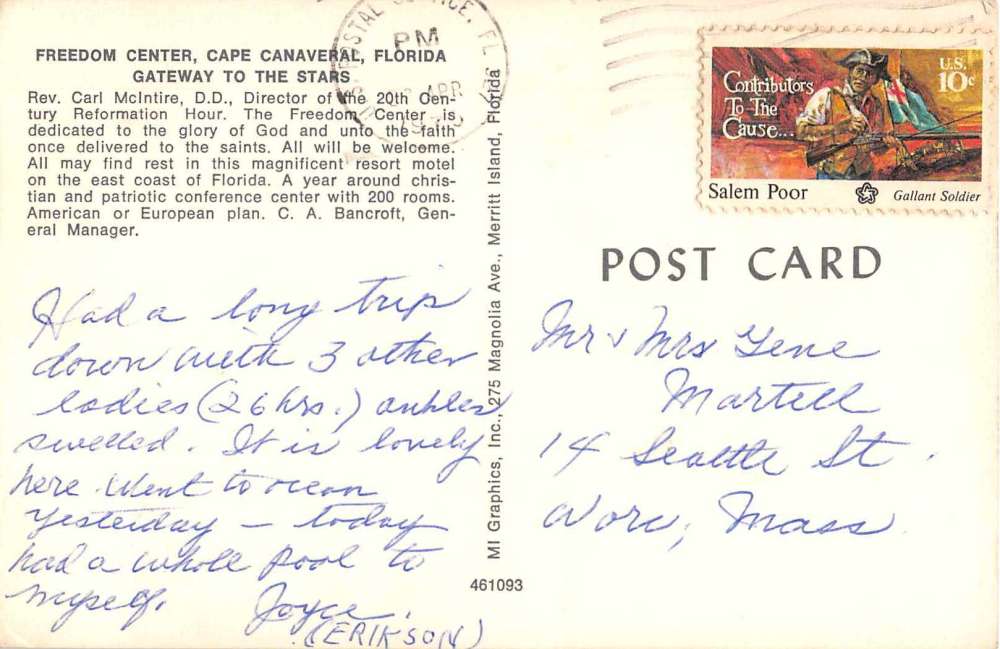 FREEDOM CENTER, CAPE CANAVERAL, FLORIDA
GATEWAY TO THE STARS
Rev. Carl McIntire, D.D., Director of the 20th Cen-
tury Reformation Hour. The Freedom Center is
dedicated to the glory of God and unto the faith
once delivered to the saints. All will be welcome.
All may find rest in this magnificent resort motel
on the east coast of Florida. A year around chris-
tian and patriotic conference center with 200 rooms.
American or European plan. C. A. Bancroft, Gen-
eral Manager.
Had a long trip
down with 3 other
ladies (26 hrs.) ankles
swelled. It is lovely
here. Went to ocean
yesterday – today
had a whole pool to
myself.
Joyce.
(ERIKSON)
MI Graphics, Inc., 275 Magnolia Ave., Merritt Island, Florida
461093
POSTAL SERVICE, FL
PM
APR
Contributors
To The
Cause...
U.S.
10c
Salem Poor
Gallant Soldier
POST CARD
Mr & Mrs Gene
Martell
14 Seattle St.
Worc, Mass